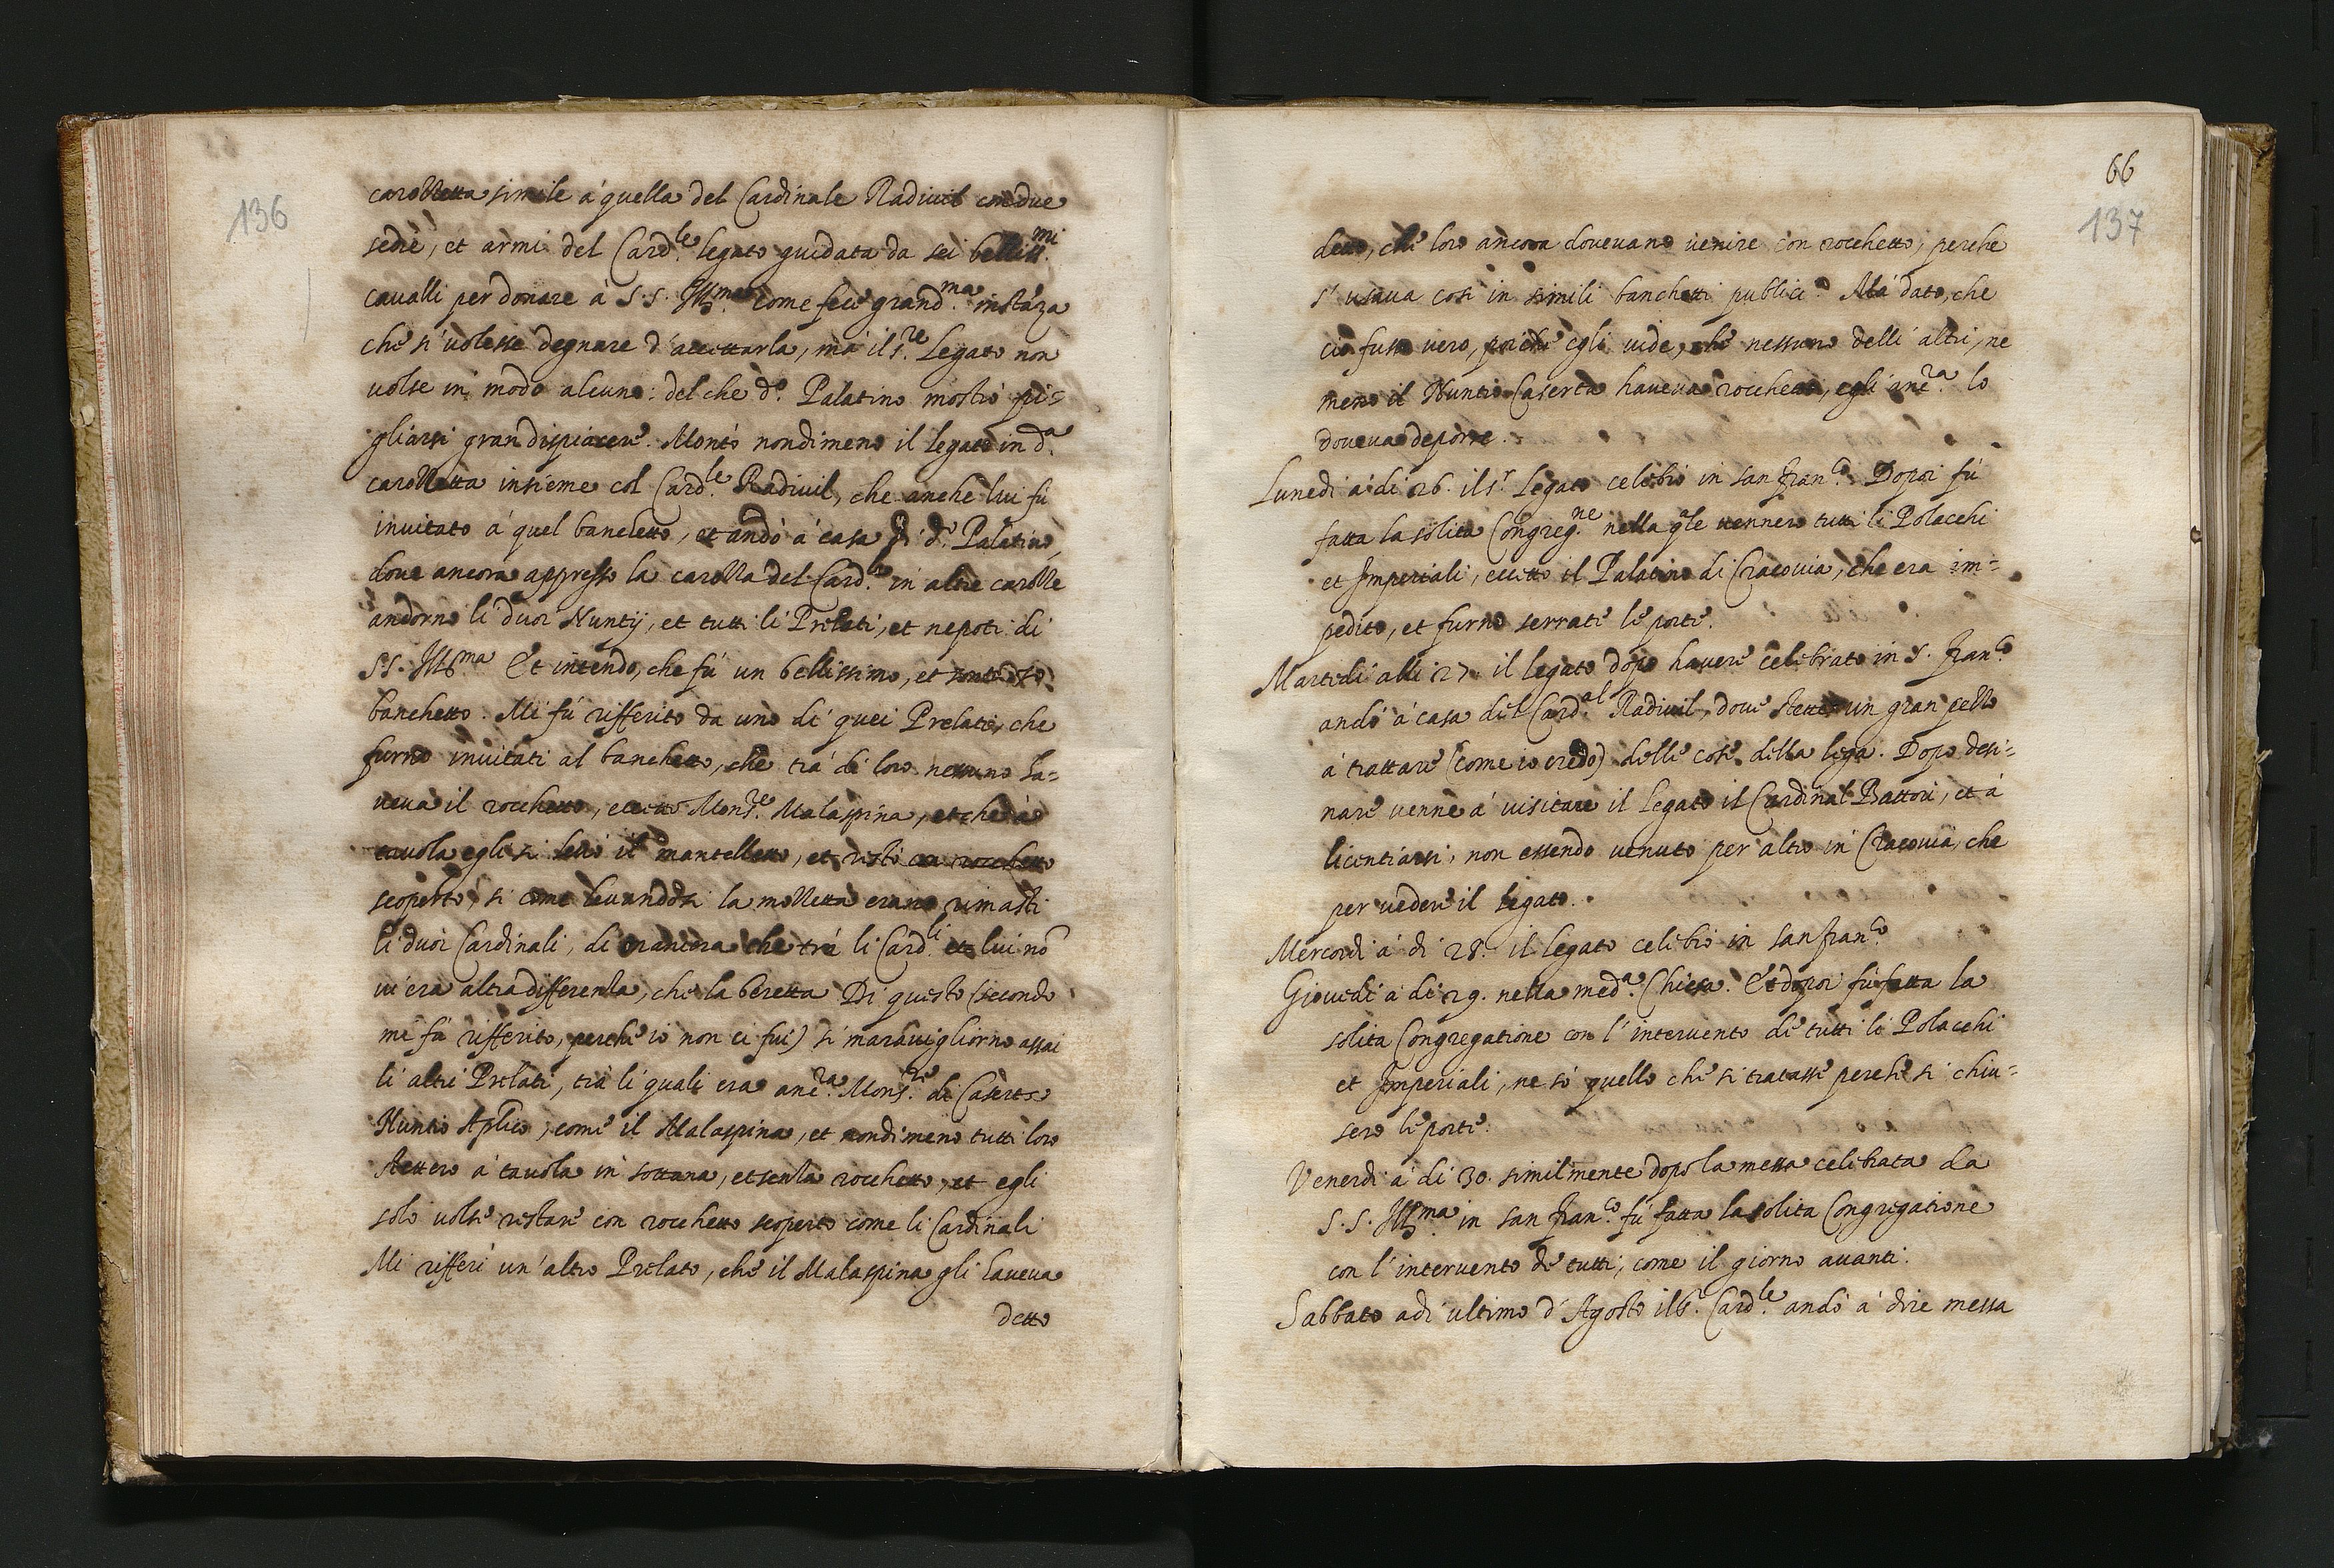 136
carozzetta simile á quella del Cardinale Radivil con due
sedie, et armi del Card.le legato guidata da sei belliss.mi
cavalli per donare á S. S. Ill.ma come fece grand.ma instãza
che si volesse degnare d'accettarla, má il s.re Legato non
volse in modo alcuno: del che d.o Palatino mostrò pi=
gliarsi gran dispiacere. Montò nondimeno il legato in d.a
carozzetta insieme col Card.le Radivil, che anche lui fú
invitato á quel banchetto, et andò á casa di d.o Palatino,
dove ancora appresso la carozza del Card.le in altre carozze
andorno li duoi Nuntij, et tutti li Prelati, et nepoti di
S.S. Ill.ma Et intendo, che fú un bellissimo, et sontuoso
banchetto. Mi fú rifferito da uno di quei Prelati, che
furno invitati al banchetto, che trá di loro nessuno ha=
veva il rocchetto, eccetto Mons.re Malaspina, et che á
tavola egli si levò il mantelletto, et restò con rocchetto
scoperto, si come levandosi la mozzetta erano rimasti
li duoi Cardinali, di maniera che trá li Card.li et lui nõ
vi era altra differenza, che la beretta. Di questo (secondo
mi fú rifferito, perche io non ci fui) si maravigliorno assai
li altri Prelati, trá li quali era anc.ra Mons.re di Caserta
Nuntio Aplico, come il Malaspina, et nondimeno tutti loro
stettero á tavola in sottana, et senza rocchetto, et egli
solo volse restare con rocchetto scoperto come li Cardinali
Mi rifferì un'altro Prelato, che il Malaspina gli haveva
detto
66
137
detto, che loro ancora dovevano venire con rocchetto, perche
s'usava così in simili banchetti publici. Má dato, che
ciò fusse vero, poiche egli vide, che nessuno delli altri, ne
meno il Nuntio Caserta haveva rocchetto, egli anc.ra lo
doveva deporre.
Lunedì á di 26. il s.r Legato celebrò in san Fran.co Dopoi fú
fatta la solita Congreg.ne nella q̃le vennero tutti li Polacchi
et Imperiali, eccetto il Palatino di Cracovia, che era im=
pedito, et furno serrate le porte.
Martedì alli 27. il legato dopo havere celebrato in S. Fran.co
andò á casa del Card.al Radivil, dove stette un gran pezzo
á trattare (come io credo) delle cose della lega. Dopo desi=
nare venne á visitare il Legato il Cardinal Battori, et á
licentiarsi, non essendo venuto per altro in Cracovia, che
per vedere il legato.
Mercordì á di 28. il legato celebrò in san Fran.co
Giovedì á di 29. nella med.a Chiesa. Et dopoi fú fatta la
solita Congregatione con l'intervento di tutti li Polacchi
et Imperiali, ne sò quello che si tratasse perche si chiu=
sero le porte.
Venerdì á di 30. similmente dopo la messa celebrata da
S. S. Ill.ma in san Fran.co fú fatta la solita Congregatione
con l'intervento de tutti, come il giorno avanti.
Sabbato adì ultimo d'Agosto il s. Card.le andò á dire messa